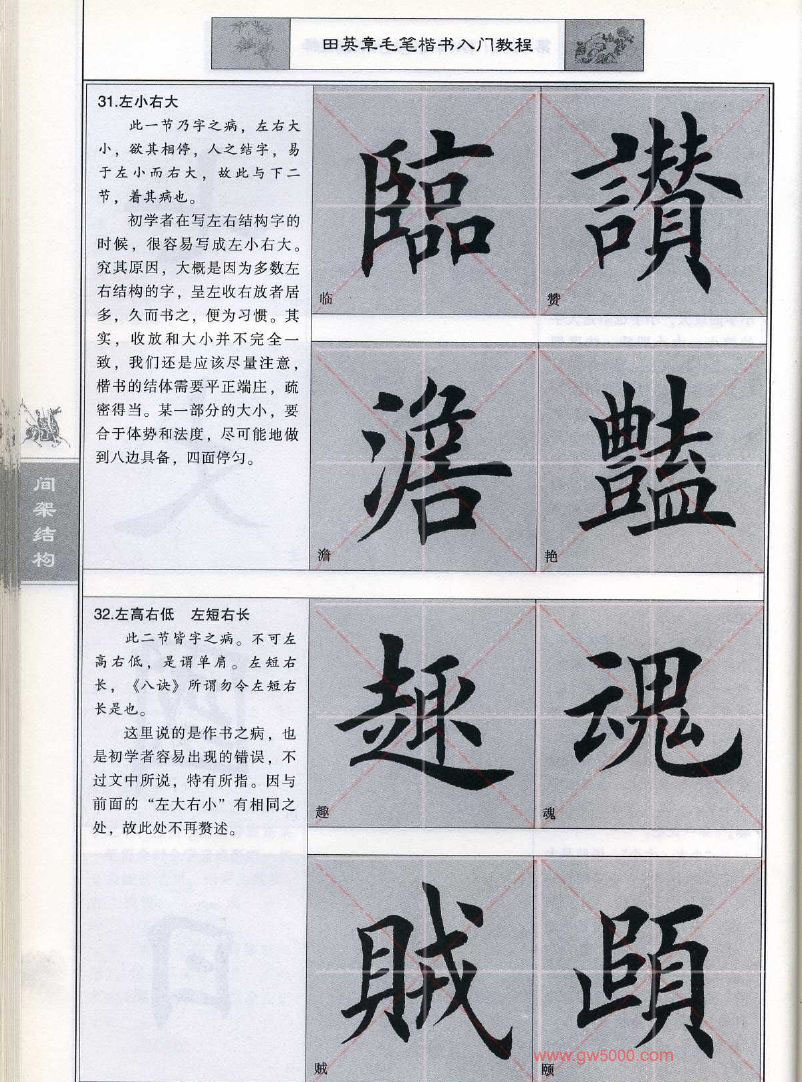 田英章毛笔楷书入门教程
31.左小右大
此一节乃字之病，左右大
小，欲其相停，人之结字，易
于左小而右大，故此与下二
节，着其病也。
初学者在写左右结构字的
时候，很容易写成左小右大。
究其原因，大概是因为多数左
右结构的字，呈左收右放者居
多，久而书之，便为习惯。其
实，收放和大小并不完全一
致，我们还是应该尽量注意，
楷书的结体需要平正端庄，疏
密得当。某一部分的大小，要
合于体势和法度，尽可能地做
到八边具备，四面停匀。
臨
讃
临
赞
澹
豔
澹
艳
间架结构
32.左高右低 左短右长
此二节皆字之病。不可左
高右低，是谓单肩。左短右
长，《八诀》所谓勿令左短右
长是也。
这里说的是作书之病，也
是初学者容易出现的错误，不
过文中所说，特有所指。因与
前面的“左大右小”有相同之
处，故此处不再赘述。
趣
魂
趣
魂
賊
頤
贼
颐
www.gw5000.com